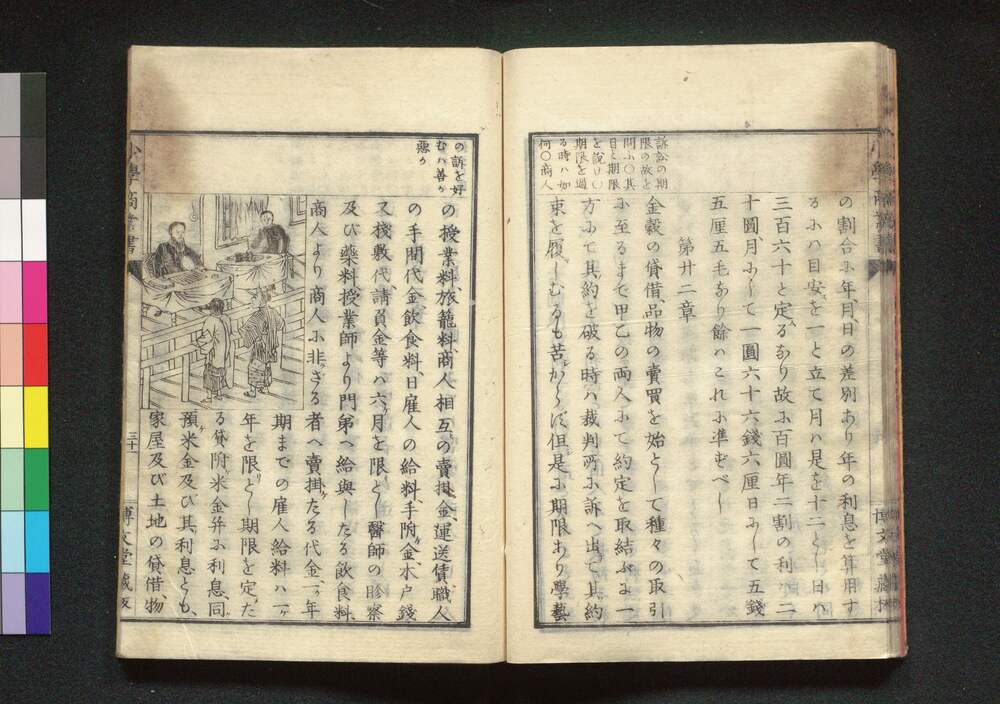 の割合ふ年、月、日の差別あり年の利息を算用す
るふハ目安を一と立て月ハ是を十二とし日ハ
三百六十と定るあり故ふ百圓年二割の利ハ二
十圓、月ふして一圓六十六錢六厘日ふして五錢
五厘五毛あり餘ハこれふ準ずべし
第廿二章
訴訟の期
限の故を
問ふ〇其
目と期限
を說け〇
期限を過
る時ハ如
何〇商人
金穀の貸借、品物の賣買を始として種々の取引
ふ至るまで甲乙の両人ふて約定を取結ぶふ一
方ふて其約を破る時ハ裁判所ふ訴へ出て其約
束を履しむるも苦からず但是ふ期限あり學藝
の訴を好
むハ善か
惡か
の授業料、旅籠料、商人相互の賣掛金、運送賃、職人
の手間代金、飲食料、日雇人の給料、手附金、木戸錢
又棧敷代、請負金等ハ六ヶ月を限とし醫師の診察
及び藥料、授業師より門弟へ給與したる飲食料、
商人より商人ふ非ざる者へ賣掛たる代金一ヶ年
期までの雇人給料ハ一ヶ
年を限とし期限を定た
る貸附米金并ふ利息、同
預ヶ米金及び其利息とも、
家屋及び土地の貸借、物
小學商業書
三十一
博文堂藏板